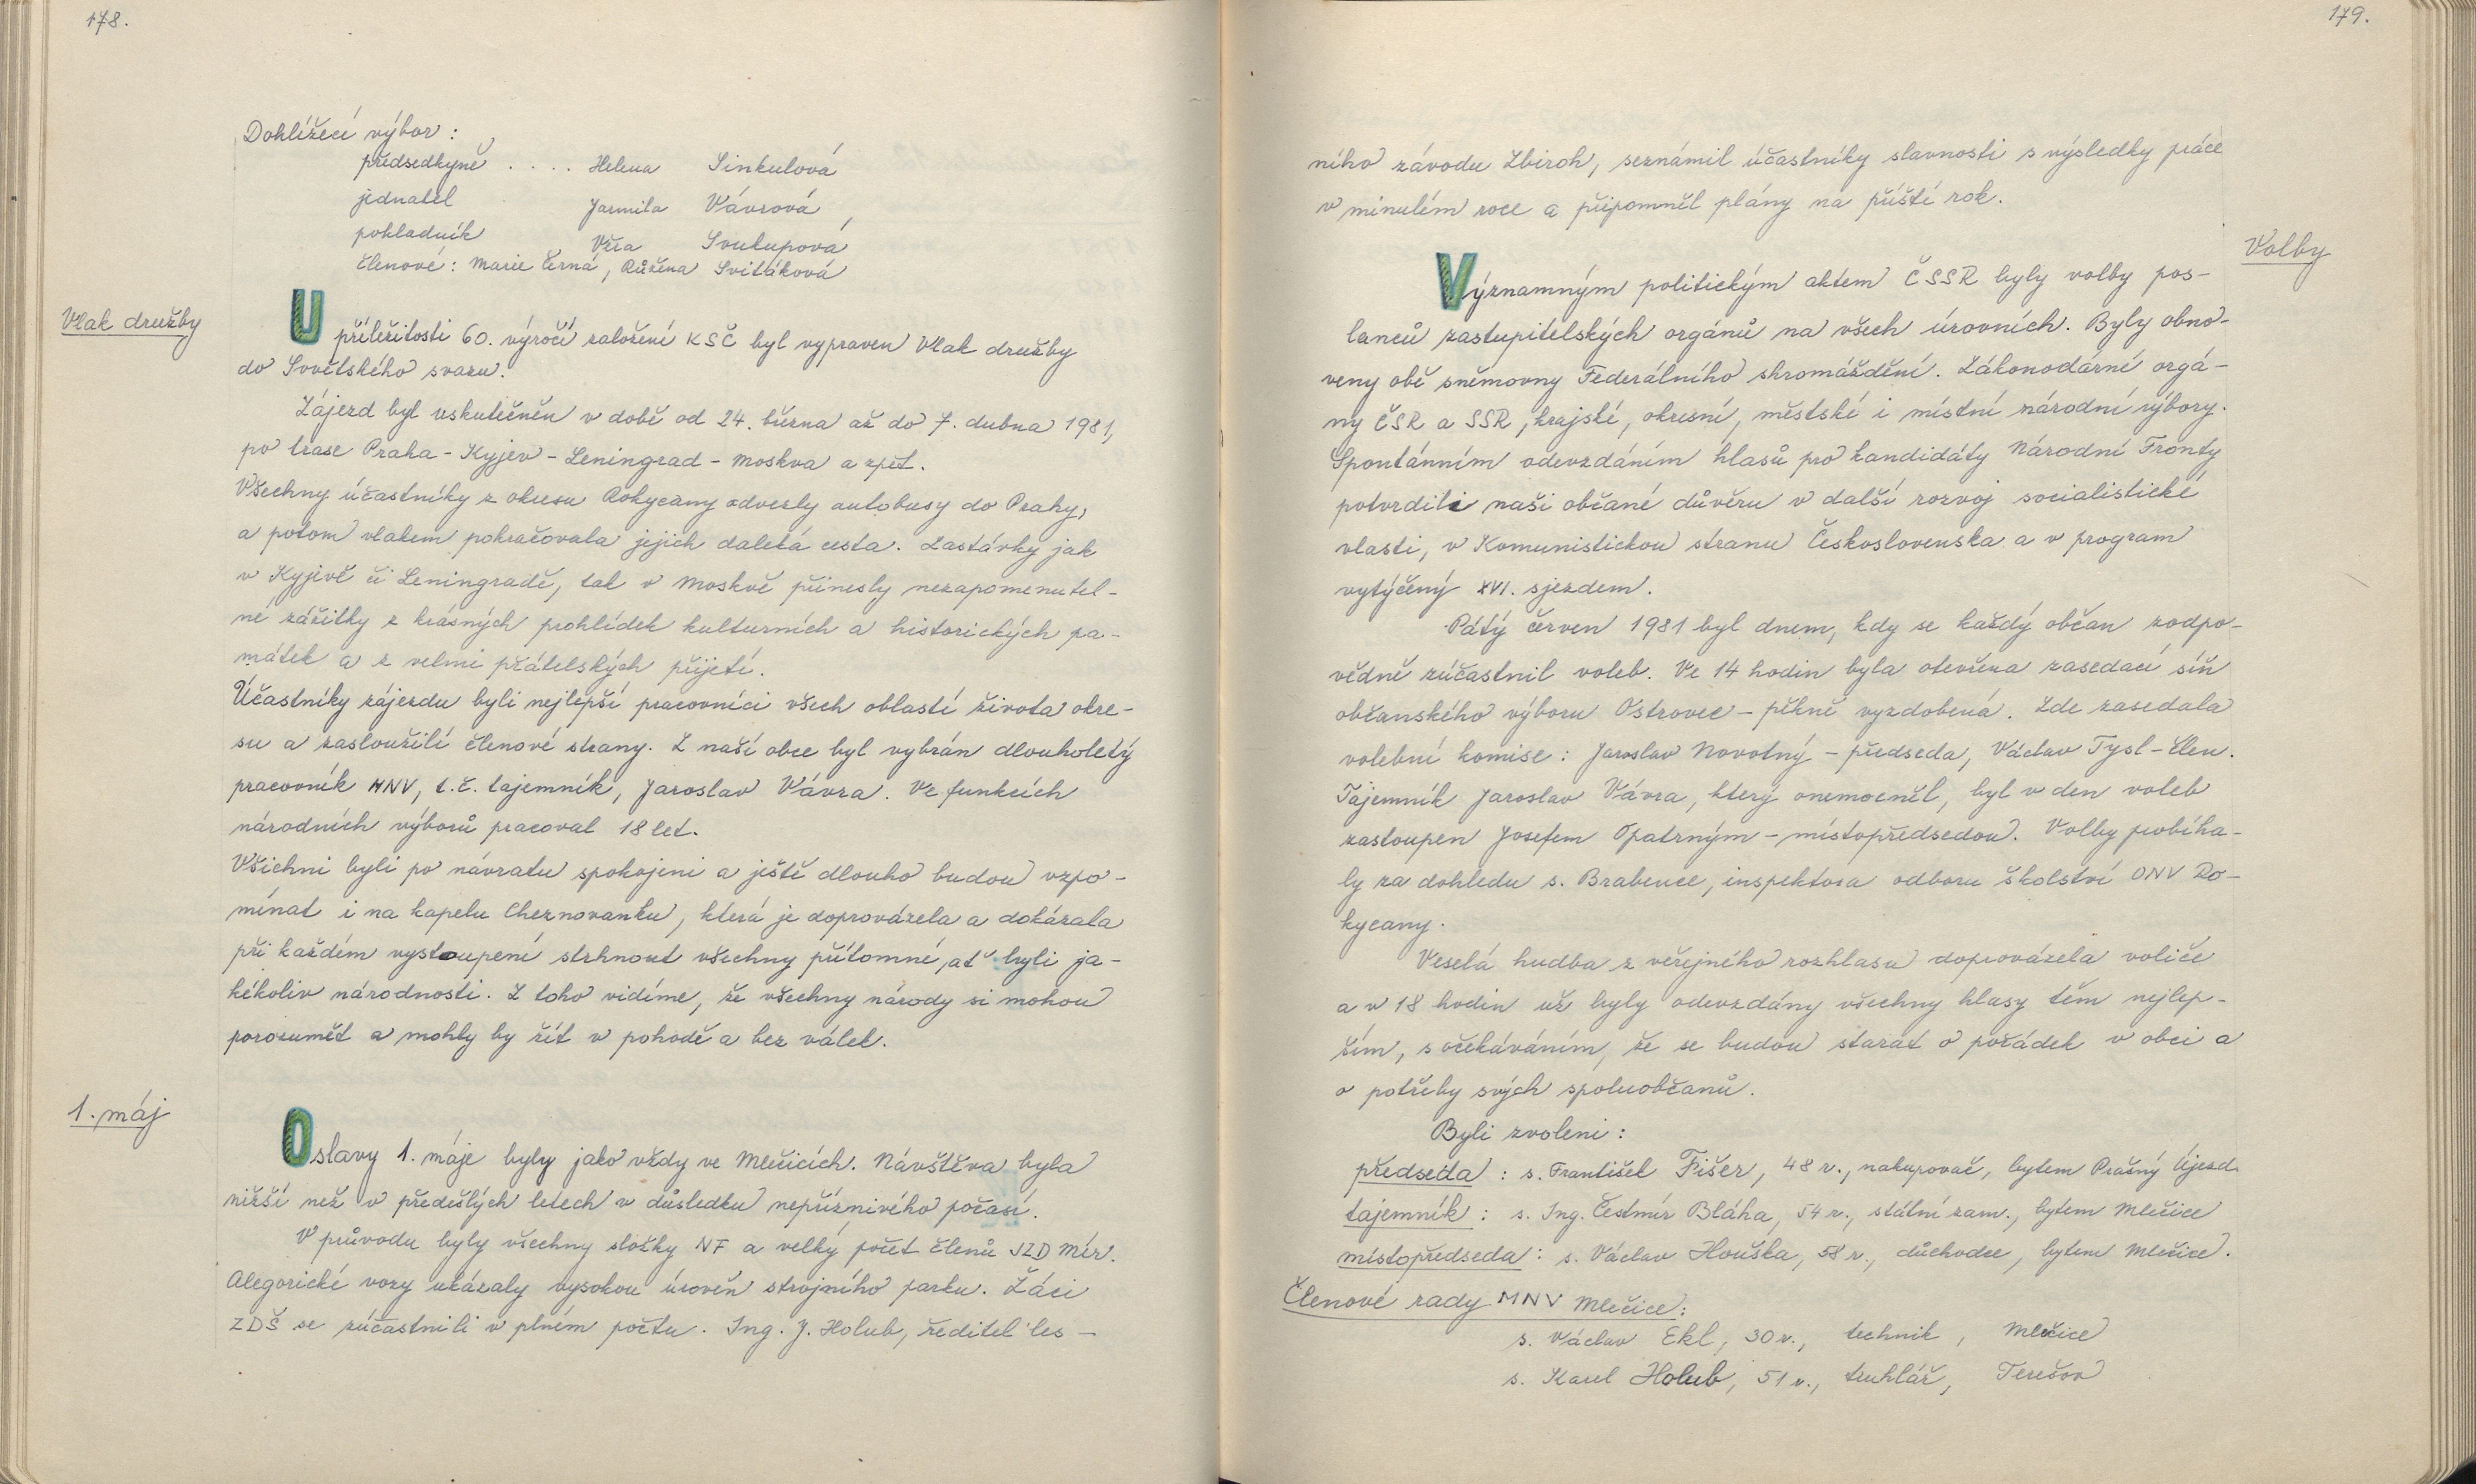 178.
Dohlížecí výbor :
předsedkyně . . . . Helena Sinkulová
jednatel Jarmila Vávrová
pokladník Věra Soukupová
členové : Marie Černá, Růžena Svitáková
Vlak družby
U příležitosti 60. výročí založení KSČ byl vypraven Vlak družby
do Sovětského svazu.
Zájezd byl uskutečněn v době od 24. března až do 7. dubna 1981,
po trase Praha - Kyjev - Leningrad - Moskva a zpět.
Všechny účastníky z okresu Rokycany odvezly autobusy do Prahy,
a potom vlakem pokračovala jejich daleká cesta. Zastávky jak
v Kyjevě či Leningradě, tak v Moskvě přinesly nezapomenutel-
né zážitky z krásných prohlídek kulturních a historických pa-
mátek a z velmi přátelských přijetí.
Účastníky zájezdu byli nejlepší pracovníci všech oblastí života okre-
su a zasloužilí členové strany. Z naší obce byl vybrán dlouholetý
pracovník MNV, t.č. tajemník, Jaroslav Vávra. Ve funkcích
národních výborů pracoval 18 let.
Všichni byli po návratu spokojeni a ještě dlouho budou vzpo-
mínat i na kapelu Cheznovanku, která je doprovázela a dokázala
při každém vystoupení strhnout všechny přítomné, ať byli ja-
kékoliv národnosti. Z toho vidíme, že všechny národy si mohou
porozumět a mohly by žít v pohodě a bez válek.
1. máj
Oslavy 1. máje byly jako vždy ve Mlečicích. Návštěva byla
nižší než v předešlých letech v důsledku nepříznivého počasí.
V průvodu byly všechny složky NF a velký počet členů JZD Mír.
Alegorické vozy ukázaly vysokou úroveň strojního parku. Žáci
ZDŠ se zúčastnili v plném počtu. Ing. J. Holub, ředitel les -
179.
ního závodu Zbiroh, seznámil účastníky slavnosti s výsledky práce
v minulém roce a připomněl plány na příští rok.
Volby
Významným politickým aktem ČSSR byly volby pos-
lanců zastupitelských orgánů na všech úrovních. Byly obno-
veny obě sněmovny Federálního shromáždění. Zákonodárné orgá-
ny ČSR a SSR, krajské, okresní, městské i místní národní výbory.
Spontánním odevzdáním hlasů pro kandidáty Národní Fronty
potvrdili naši občané důvěru v další rozvoj socialistické
vlasti, v Komunistickou stranu Československa a v program
vytýčený XVI. sjezdem.
Pátý červen 1981 byl dnem, kdy se každý občan zodpo-
vědně zúčastnil voleb. Ve 14 hodin byla otevřena zasedací síň
občanského výboru Ostrovec - pěkně vyzdobená. Zde zasedala
volební komise : Jaroslav Novotný - předseda, Václav Tysl - člen.
Tajemník Jaroslav Vávra, který onemocněl, byl v den voleb
zastoupen Josefem Opatrným - místopředsedou. Volby probíha-
ly za dohledu s. Brabence, inspektora odboru školství ONV Ro-
kycany.
Veselá hudba z veřejného rozhlasu doprovázela voliče
a v 18 hodin už byly odevzdány všechny hlasy těm nejlep-
ším, s očekáváním, že se budou starat o pořádek v obci a
o potřeby svých spoluobčanů.
Byli zvoleni :
předseda : s. František Fišer, 48 r., nakupovač, bytem Prašný Újezd
tajemník : s. Ing. Čestmír Bláha, 54 r., státní zam., bytem Mlečice
místopředseda : s. Václav Houška, 58 r., důchodce, bytem Mlečice.
Členové rady MNV Mlečice :
s. Václav Ekl, 30 r., technik, Mlečice
s. Karel Holub, 51 r., truhlář, Terešov